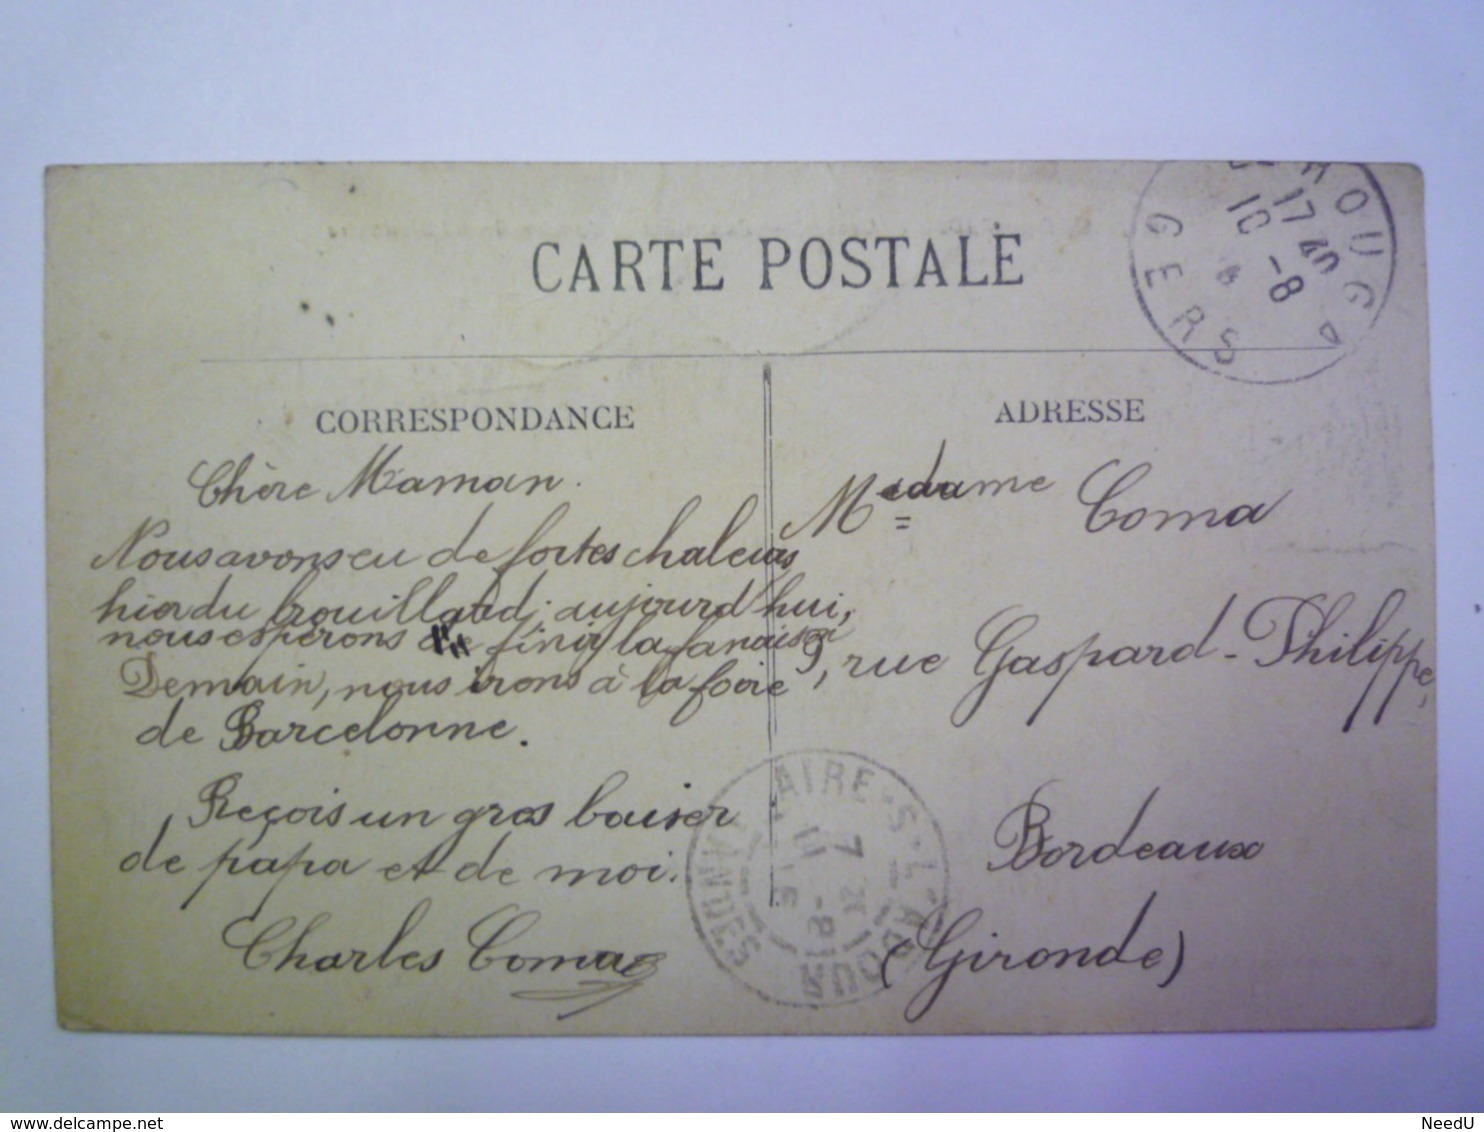 CARTE POSTALE
17 40
10 -8
GERS
CORRESPONDANCE
Chère Maman.
Nous avons eu de fortes chaleurs
hier du brouillard; aujourd'hui,
nous espérons finir la fanaison
Demain, nous irons à la foire
de Barcelonne.
Reçois un gros baiser
de papa et de moi.
Charles Coma
ADRESSE
Madame Coma
9, rue Gaspard-Philippe,
Bordeaux
(Gironde)
AIRE-S-L'ADOUR
LANDES
delcampe.net
NeedU